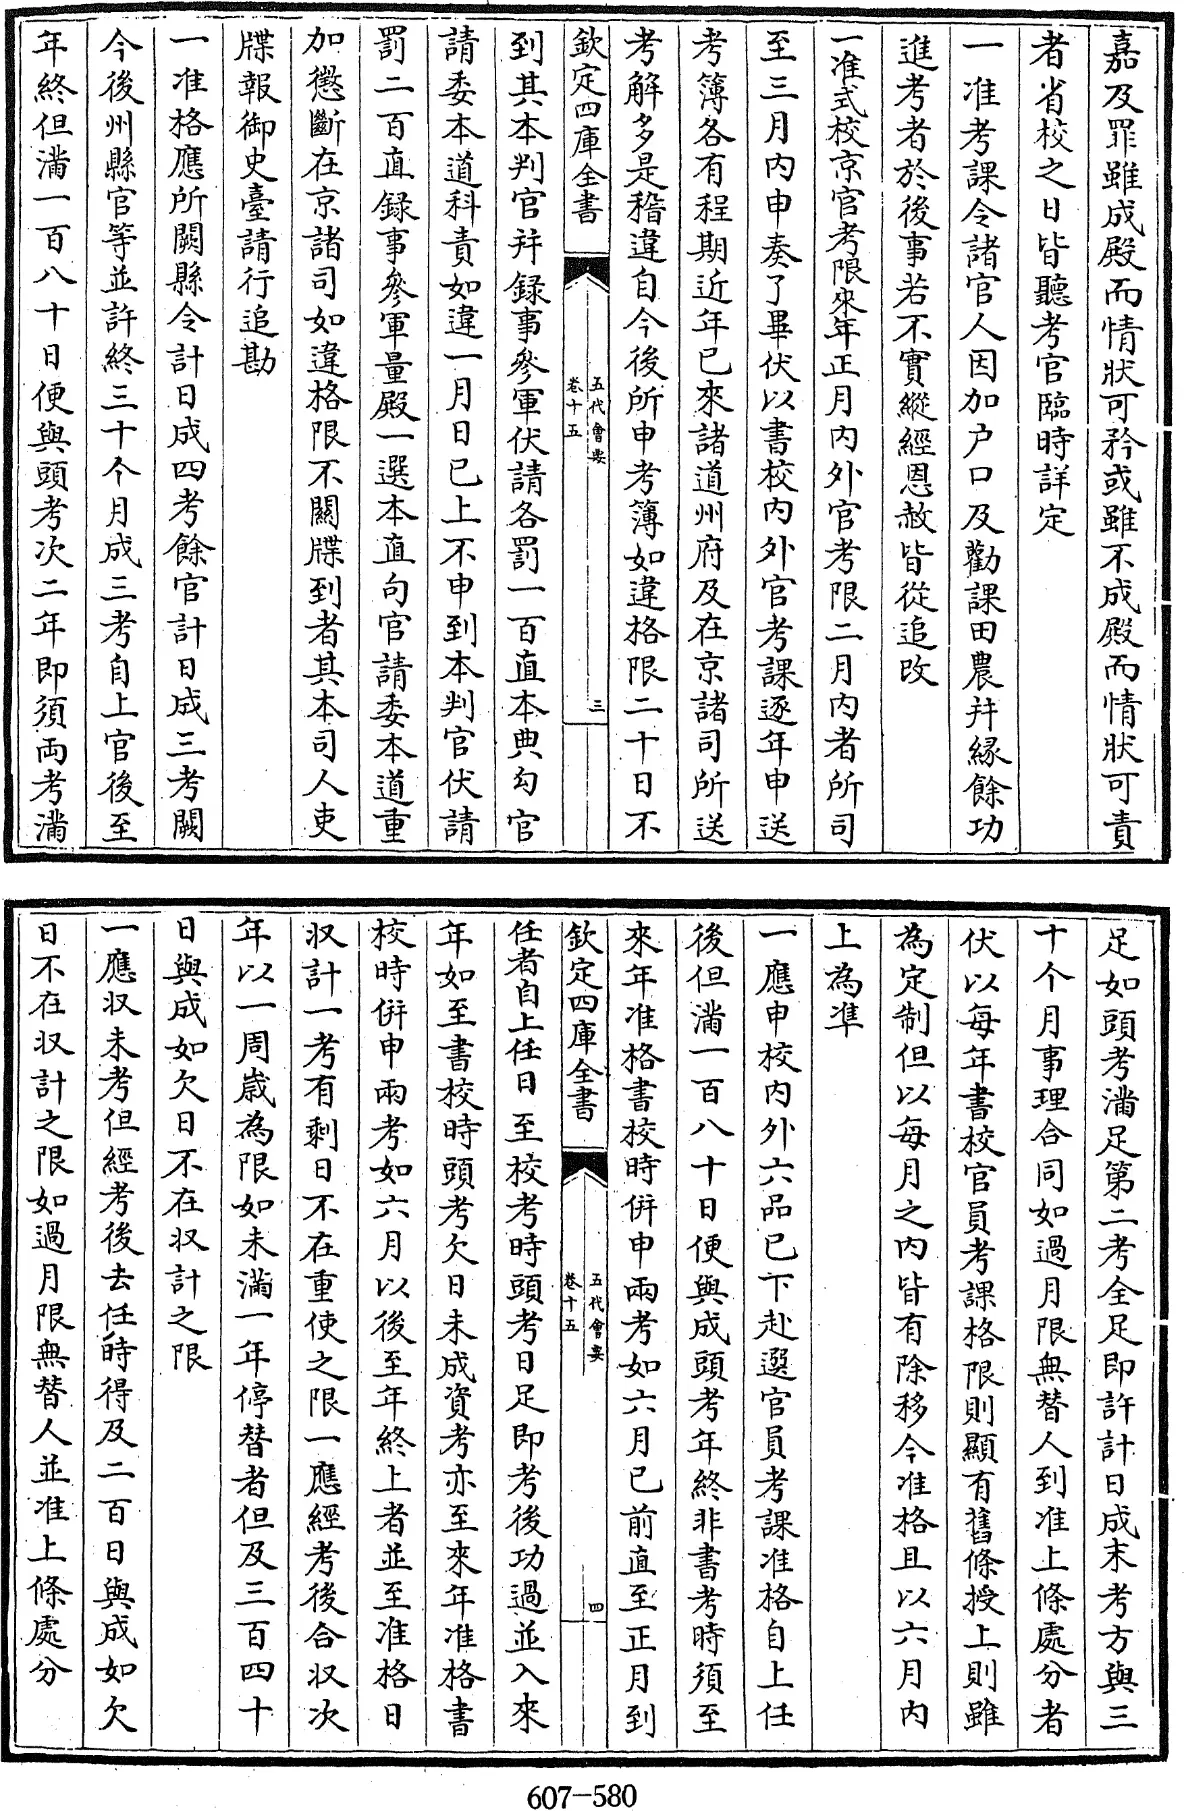 嘉及罪雖成殿而情狀可矜或雖不成殿而情狀可責
者省校之日皆聽考官臨時詳定
一准考課令諸官人因加户口及勸課田農幷緣餘功
進考者於後事若不實縱經恩赦皆從追改
一准式校京官考限來年正月內外官考限二月內者所司
至三月內申奏了畢伏以書校內外官考課逐年申送
考簿各有程期近年已來諸道州府及在京諸司所送
考解多是稽違自今後所申考簿如違格限二十日不
欽定四庫全書
五代會要
卷十五
三
到其本判官幷錄事參軍伏請各罰一百直本典勾官
請委本道科責如違一月日已上不申到本判官伏請
罰二百直錄事參軍量殿一選本直句官請委本道重
加懲斷在京諸司如違格限不關牒到者其本司人吏
牒報御史臺請行追勘
一准格應所闕縣令計日成四考餘官計日成三考闕
今後州縣官等並許終三十个月成三考自上官後至
年終但滿一百八十日便與頭考次二年即須兩考滿
足如頭考滿足第二考全足即許計日成末考方與三
十个月事理合同如過月限無替人到准上條處分者
伏以每年書校官員考課格限則顯有舊條授上則雖
為定制但以每月之內皆有除移今准格且以六月內
上為準
一應申校內外六品已下赴選官員考課准格自上任
後但滿一百八十日便與成頭考年終非書考時須至
來年准格書校時併申兩考如六月已前直至正月到
欽定四庫全書
五代會要
卷十五
四
任者自上任日至校考時頭考日足即考後功過並入來
年如至書校時頭考欠日未成資考亦至來年准格書
校時併申兩考如六月以後至年終上者並至准格日
収計一考有剩日不在重使之限一應經考後合収次
年以一周歲為限如未滿一年停替者但及三百四十
日與成如欠日不在収計之限
一應収未考但經考後去任時得及二百日與成如欠
日不在収計之限如過月限無替人並准上條處分
607-580